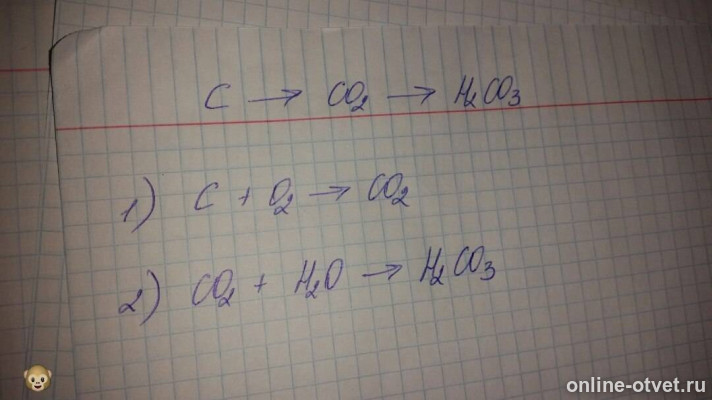 C → CO₂ → H₂CO₃
1) C + O₂ → CO₂
2) CO₂ + H₂O → H₂CO₃
online-otvet.ru